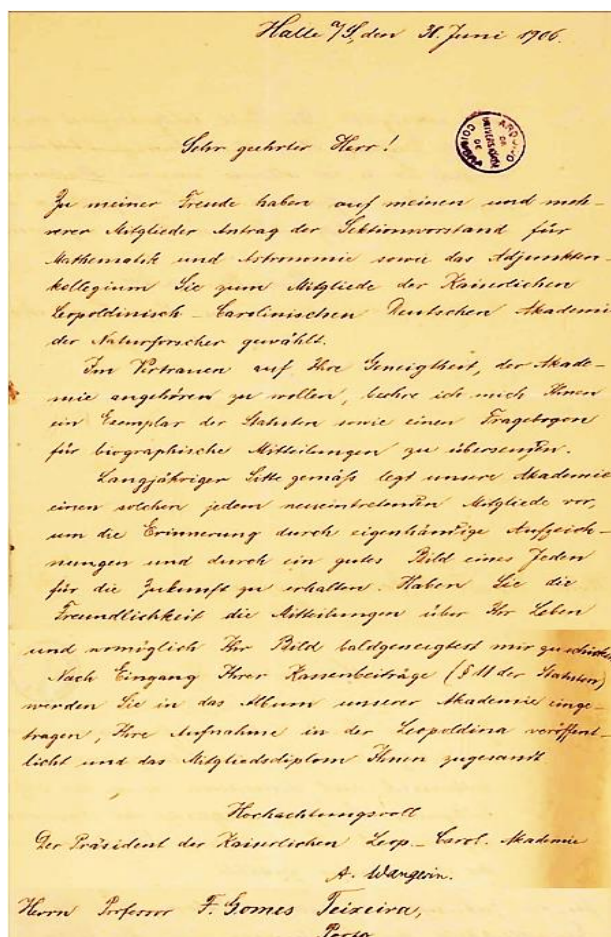 Halle a/S, den 30. Juni 1906.
ARQUIVO DA UNIVERSIDADE DE COIMBRA
Sehr geehrter Herr!
Zu meiner Freude haben auf meinen und meh-
rerer Mitglieder Antrag der Sektionvorstand für
Mathematik und Astronomie sowie das Adjunkten-
kollegium Sie zum Mitgliede der Kaiserlichen
Leopoldinisch-Carolinischen Deutschen Akademie
der Naturforscher gewählt.
Im Vertrauen auf Ihre Geneigtheit, der Akade-
mie angehören zu wollen, beehre ich mich Ihnen
ein Exemplar der Statuten sowie einen Fragebogen
für biographische Mitteilungen zu übersenden.
Langjähriger Sitte gemäß legt unsere Akademie
einen solchen jedem neueintretenden Mitgliede vor,
um die Erinnerung durch eigenhändige Aufzeich-
nungen und durch ein gutes Bild eines Jeden
für die Zukunft zu erhalten. Haben Sie die
Freundlichkeit die Mitteilungen über Ihr Leben
und womöglich Ihr Bild baldgeneigtest mir zu schicken.
Nach Eingang Ihrer Kassenbeiträge (§ 11 der Statuten)
werden Sie in das Album unserer Akademie einge-
tragen, Ihre Aufnahme in der Leopoldina veröffent-
licht und das Mitgliedsdiplom Ihnen zugesandt
Hochachtungsvoll
Der Präsident der Kaiserlichen Leop.-Carol. Akademie
A. Wangerin.
Herrn Professor F. Gomes Teixeira,
Porto